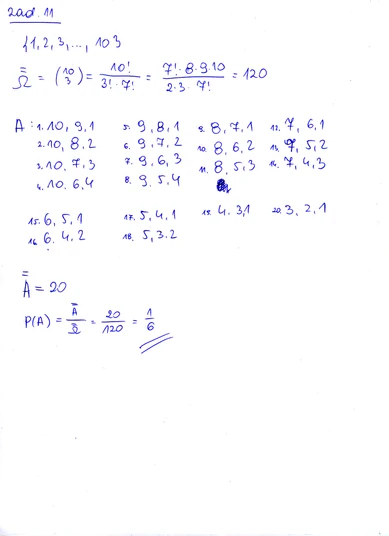 Zad. 11
{1, 2, 3, ..., 10}
Ω̿ = (10 3) = 10! / 3! · 7! = 7! · 8 · 9 · 10 / 2 · 3 · 7! = 120
A : 1. 10, 9, 1 5. 9, 8, 1 9. 8, 7, 1 12. 7, 6, 1
2. 10, 8, 2 6. 9, 7, 2 10. 8, 6, 2 13. 7, 5, 2
3. 10, 7, 3 7. 9, 6, 3 11. 8, 5, 3 14. 7, 4, 3
4. 10, 6, 4 8. 9, 5, 4
15. 6, 5, 1 17. 5, 4, 1 19. 4, 3, 1 20. 3, 2, 1
16. 6, 4, 2 18. 5, 3, 2
A̿ = 20
P(A) = A̿ / Ω̿ = 20 / 120 = 1 / 6